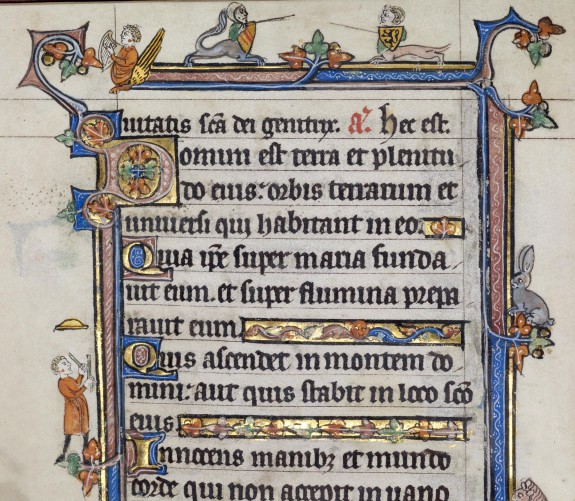 Iuitatis scā dei genitrix. aͬ. Hec est.
Domini est terra et plenitu
do eius: orbis terrarum et
uniuersi qui habitant in eo.
Quia ip̄e super maria funda
uit eum. et super flumina prepa
rauit eum.
Quis ascendet in montem do
mini: aut quis stabit in loco scō
eius
Innocens manibꝫ et mundo
corde qui non accepit in uano